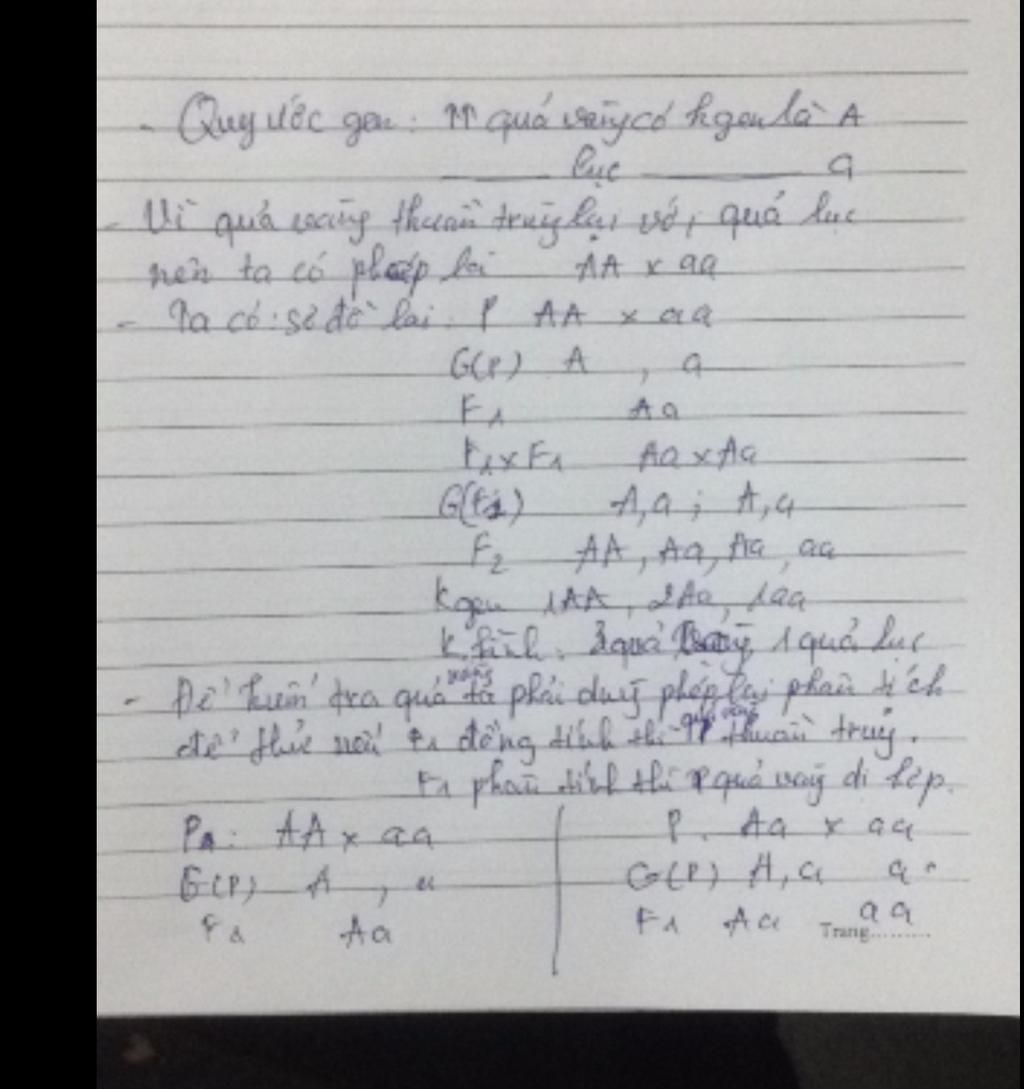 - Quy ước gen: TT quả vàng có kgen là A
lục a
- Vì quả vàng thuần trủng lai với quả lục
nên ta có phép lai AA x aa
- Ta có: sơ đồ lai. P AA x aa
G(P) A , a
F1 Aa
F1xF1 Aa x Aa
G(F1) A,a ; A,a
F2 AA, Aa, Aa, aa
Kgen 1AA, 2Aa, 1aa
K.hình: 3quả vàng, 1quả lục
- Để kiểm tra quả vàng ta phải dùng phép lai phân tích
để thử nếu F1 đồng tính thì quả vàng thuần trủng.
F1 phân tính thì P quả vàng dị hợp.
P: AA x aa
G(P) A , a
F1 Aa
P. Aa x aa
G(P) A,a a
F1 Aa aa
Trang..........